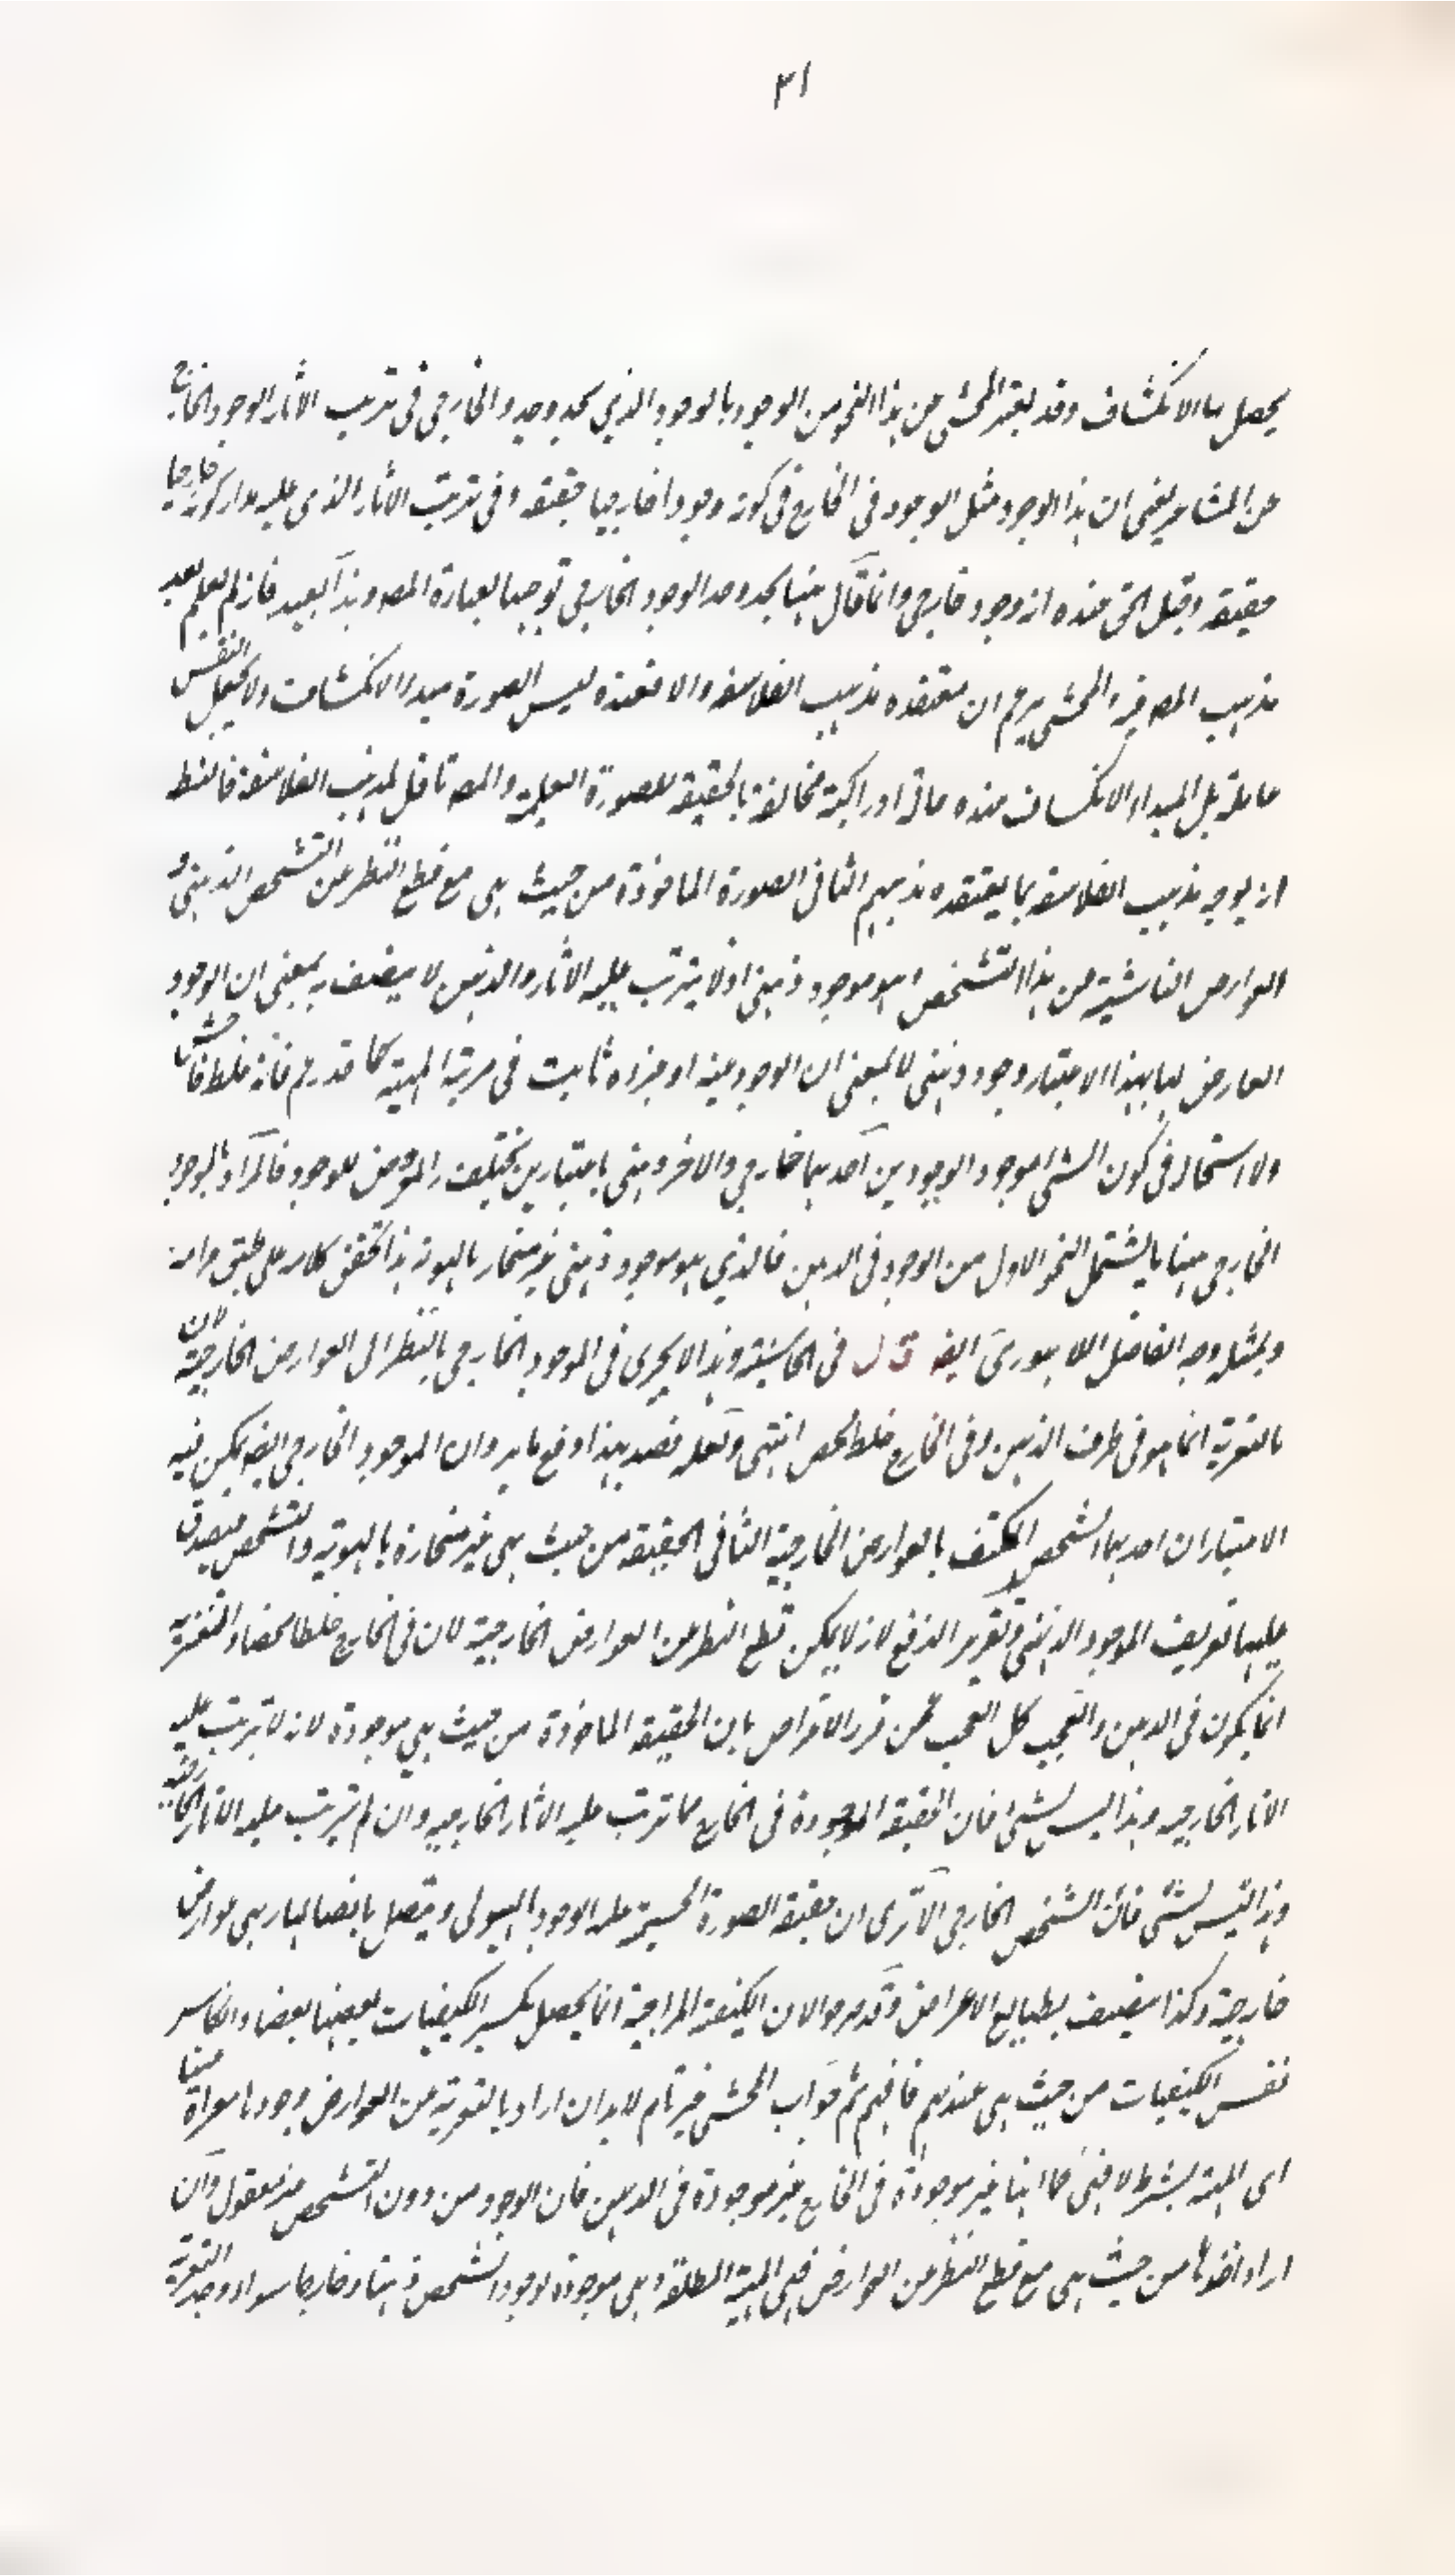 ٣١
يحصل بها الانكشاف وقد يعبر المحشي عن هذا النحو من الوجود بالوجود الذي يحذو حذو الخارجي في ترتب الاثار الوجود الخارجي
من المشاعر يعني ان هذا الوجود مثل الوجود في الخارج في كونه وجودا خارجيا حقيقة وفي ترتب الاثار الذي عليه مدار كونه خارجيا
حقيقة وقيل الحق عنده انه وجود خارجي وانما قال ههنا يحذو حذو الوجود الخارجي توجيها لعبارة المصه وهذا بعيد فانه لم يعلم بعد
مذهب المصه فيه والمحشي يزعم ان معتقده مذهب الفلاسفة والا فعنده ليس الصورة مبدء الانكشاف ولا يجعل النفس
عاملة بل المبدء الانكشاف عنده حالة ادراكية مخالفة بالحقيقة للصورة العلمية والمصه ناقل لمذهب الفلاسفة فالغلط
ان يوجه مذهب الفلاسفة بما يعتقده مذهبهم الثاني الصورة الماخوذة من حيث هي مع قطع النظر عن التشخص الذهني و
العوارض الناشية من هذا التشخص وهو موجود ذهني اذ لا يترتب عليه الاثار والذهن لا يتصف به بمعنى ان الوجود
العارض لها بهذا الاعتبار وجود ذهني لا بمعنى ان الوجود عينه او جزءه ثابت في مرتبة المهية كما قد زعم فانه غلط فاحش
ولا استحالة في كون الشيء موجود الوجودين احدهما خارجي والاخر ذهني باعتبارين يختلف المعروض للوجود فالمراد بالوجود
الخارجي ههنا ما يشتمل النحو الاول من الوجود في الذهن فالذي هو موجود ذهني غير منحاز بالهوية هذا تحقق كلامه على طبق مرامه
وبمثله وجه الفاضل اللاهوري ايضه قال في الحاشية وهذا لا يجري في الموجود الخارجي بالنظر الى العوارض الخارجية لان
التعرية انما هو في ظرف الذهن وفي الخارج خلط محض انتهى ولعله قصد بهذا دفع ما يرد ان الموجود الخارجي ايضه يمكن فيه
الاعتباران احدهما الشخص المكتنف بالعوارض الخارجية الثاني الحقيقة من حيث هي غير منحازة بالهوية والتشخص فيصدق
عليها تعريف الموجود الذهني وتقرير الدفع انه لا يمكن قطع النظر عن العوارض الخارجية لان في الخارج خلطا محضا والتعرية
انما يكون في الذهن والعجب كل العجب ممن قرر الاعتراض بان الحقيقة الماخوذة من حيث هي موجودة لانه لا يترتب عليه
الاثار الخارجيه وهذا ليس بشيء فان الحقيقة الموجودة في الخارج مما ترتب عليه الاثار الخارجيه وان لم يترتب عليه الاثار الخارجية
وهذا ليس بشيء فان الشخص الخارجي الا ترى ان حقيقة الصورة الجسمية علة الوجود الهيولى ويتصل بانضمامها هي عوارض
خارجية وكذا يتصف بطبايع الاعراض وقد صرحوا الان الكيفية المزاجية انما يحصل بكسر الكيفيات بعضها بعضا والكاسر
نفس الكيفيات من حيث هي عندهم فافهم ثم جواب المحشي غير تام لابد ان اراد بالتعرية عن العوارض وجودها معراة عنها
اى المهية بشرط لا فهي كما انها غير موجودة في الخارج غير موجودة في الذهن فان الوجود من دون التشخص غير معقول وان
اراد اخذها من حيث هي مع قطع النظر عن العوارض فهي المهية المطلقة وهي موجودة بوجود الشخص ذهنا وخارجا سواء وجد التعرية